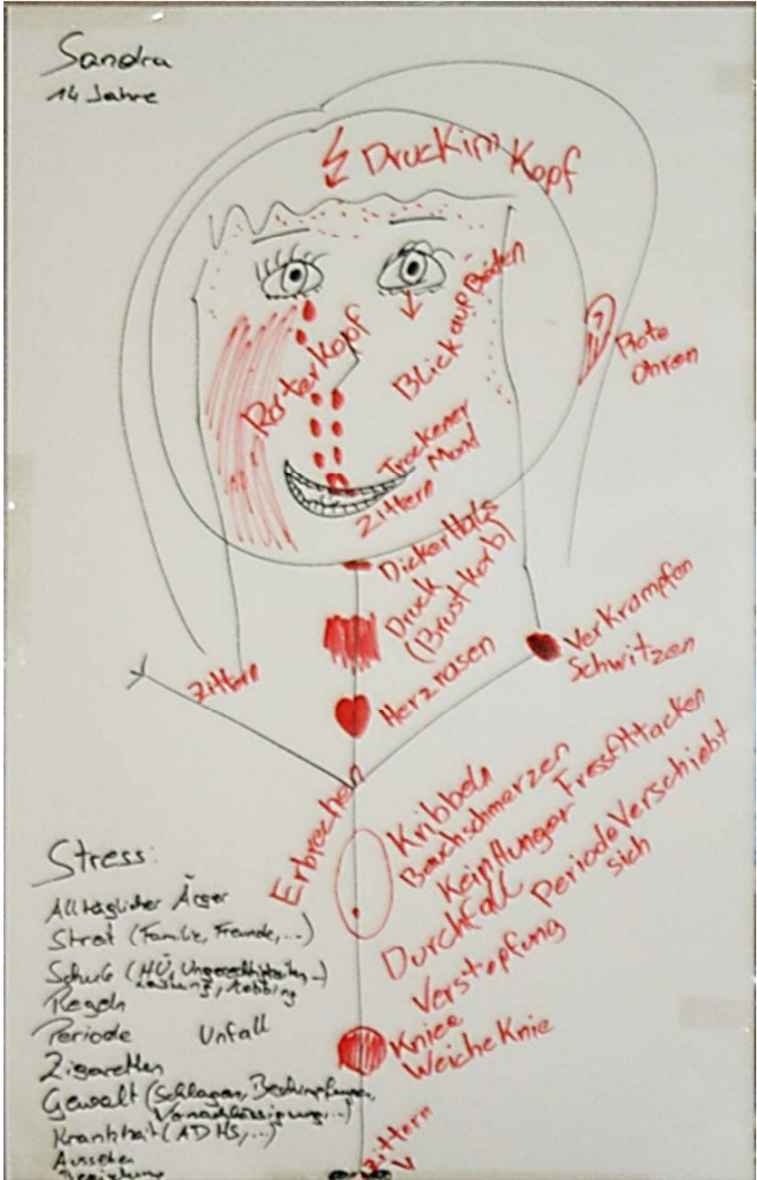 Sandra
14 Jahre
Druck im Kopf
Roter Kopf
Blick auf Boden
Rote
Ohren
Trockener
Mund
Zittern
Dicker Hals
Druck
(Brustkorb)
Herzrasen
Verkrampfen
Schwitzen
Zittern
Erbrechen
Kribbeln
Bauchschmerzen
Kein Hunger FressAttacken
Durchfall Periode Verschiebt
sich
Verstopfung
Kniee
Weiche Knie
Zittern
Stress:
Alltäglicher Ärger
Streit (Familie, Freunde,...)
Schule (HÜ, Ungerechtigkeiten,...)
Leistung, Mobbing
Regeln
Periode Unfall
Zigaretten
Gewalt (Schlagen, Beschimpfungen,
Vernachlässigung,...)
Krankheit (ADHS,...)
Aussehen
Beziehung